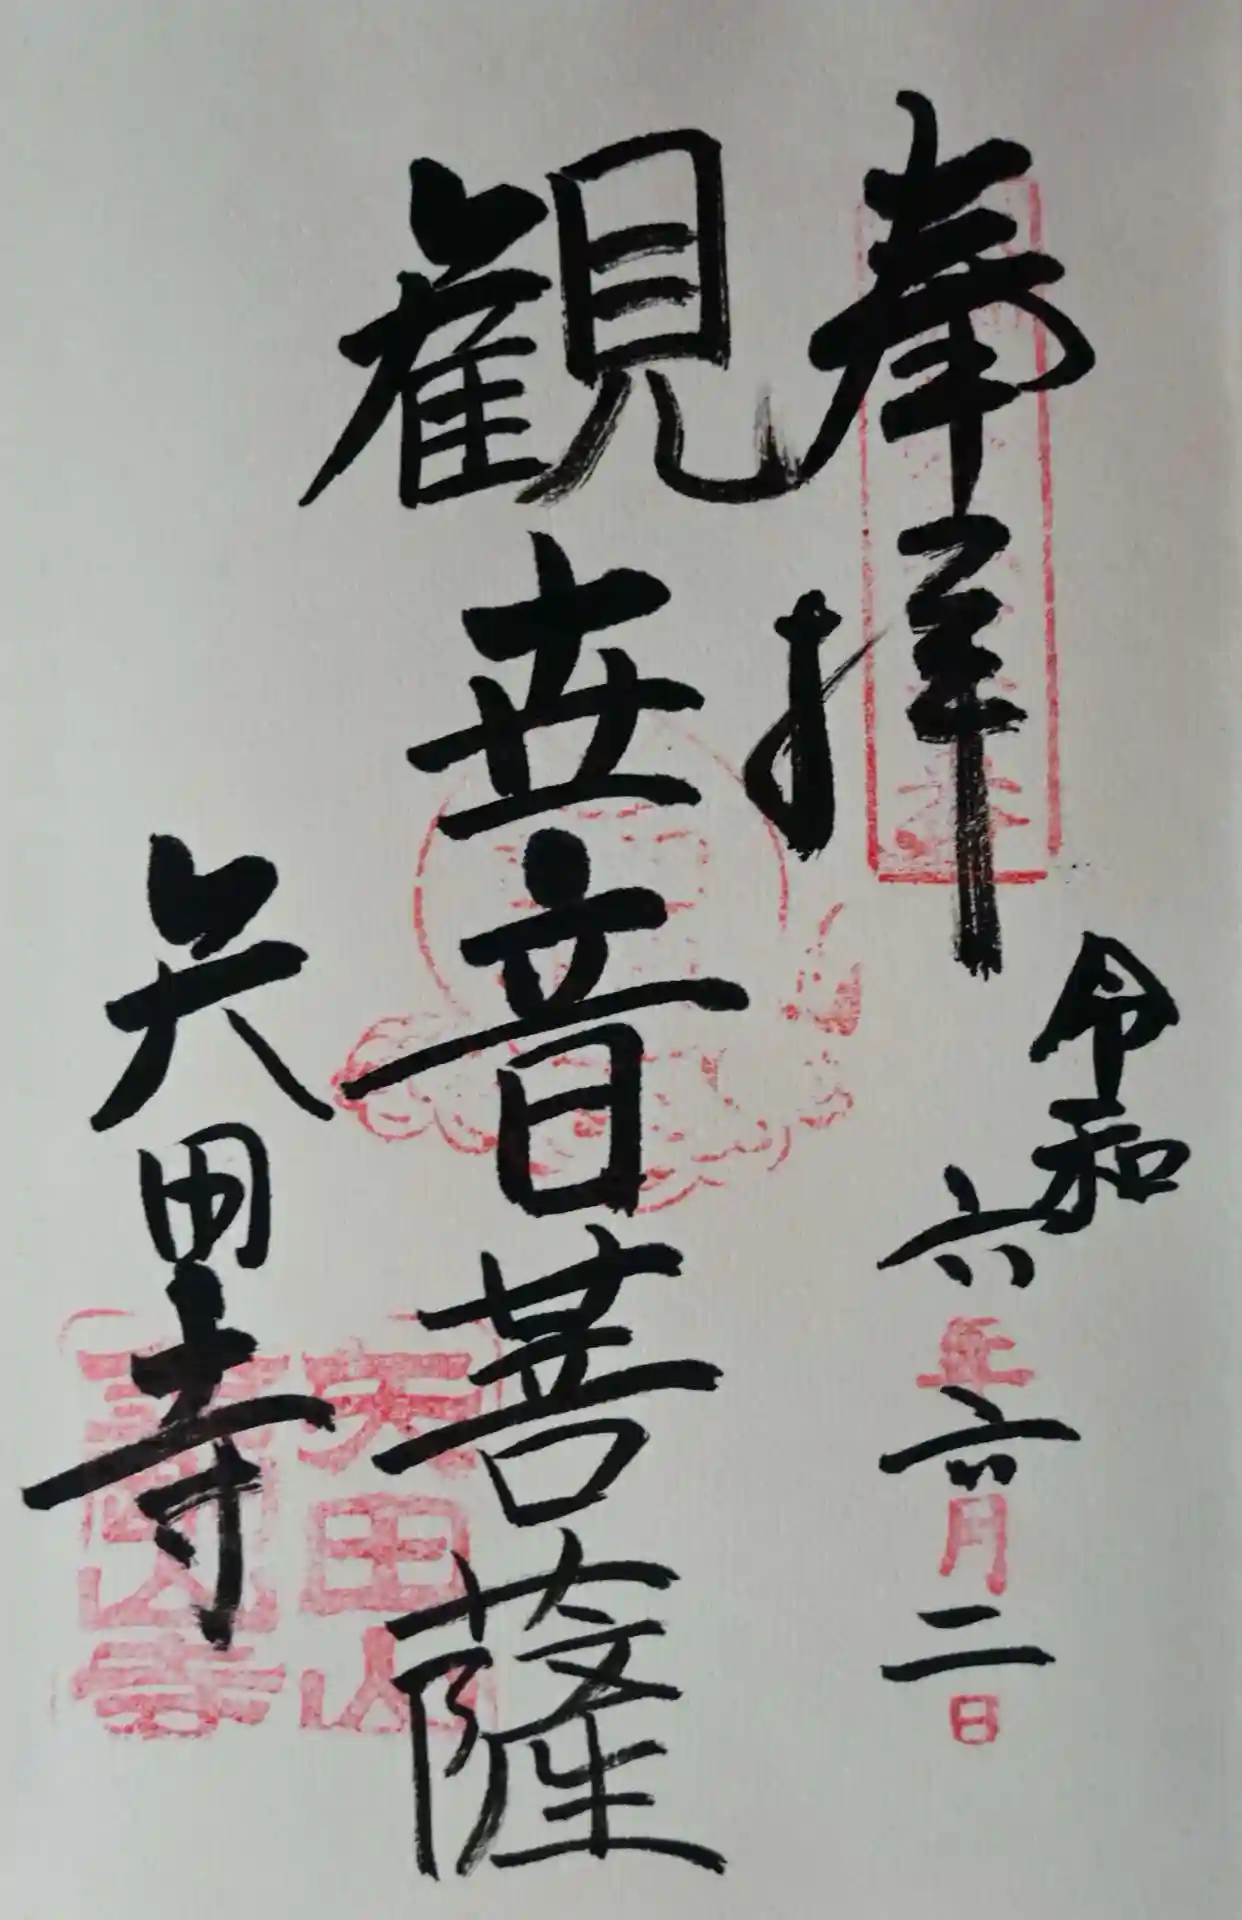 奉拝
令和六年六月二日
観世音菩薩
矢田寺
矢田山